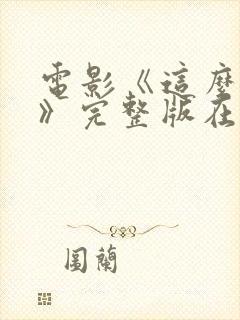 電影《這麼
》完整版在
圖蘭